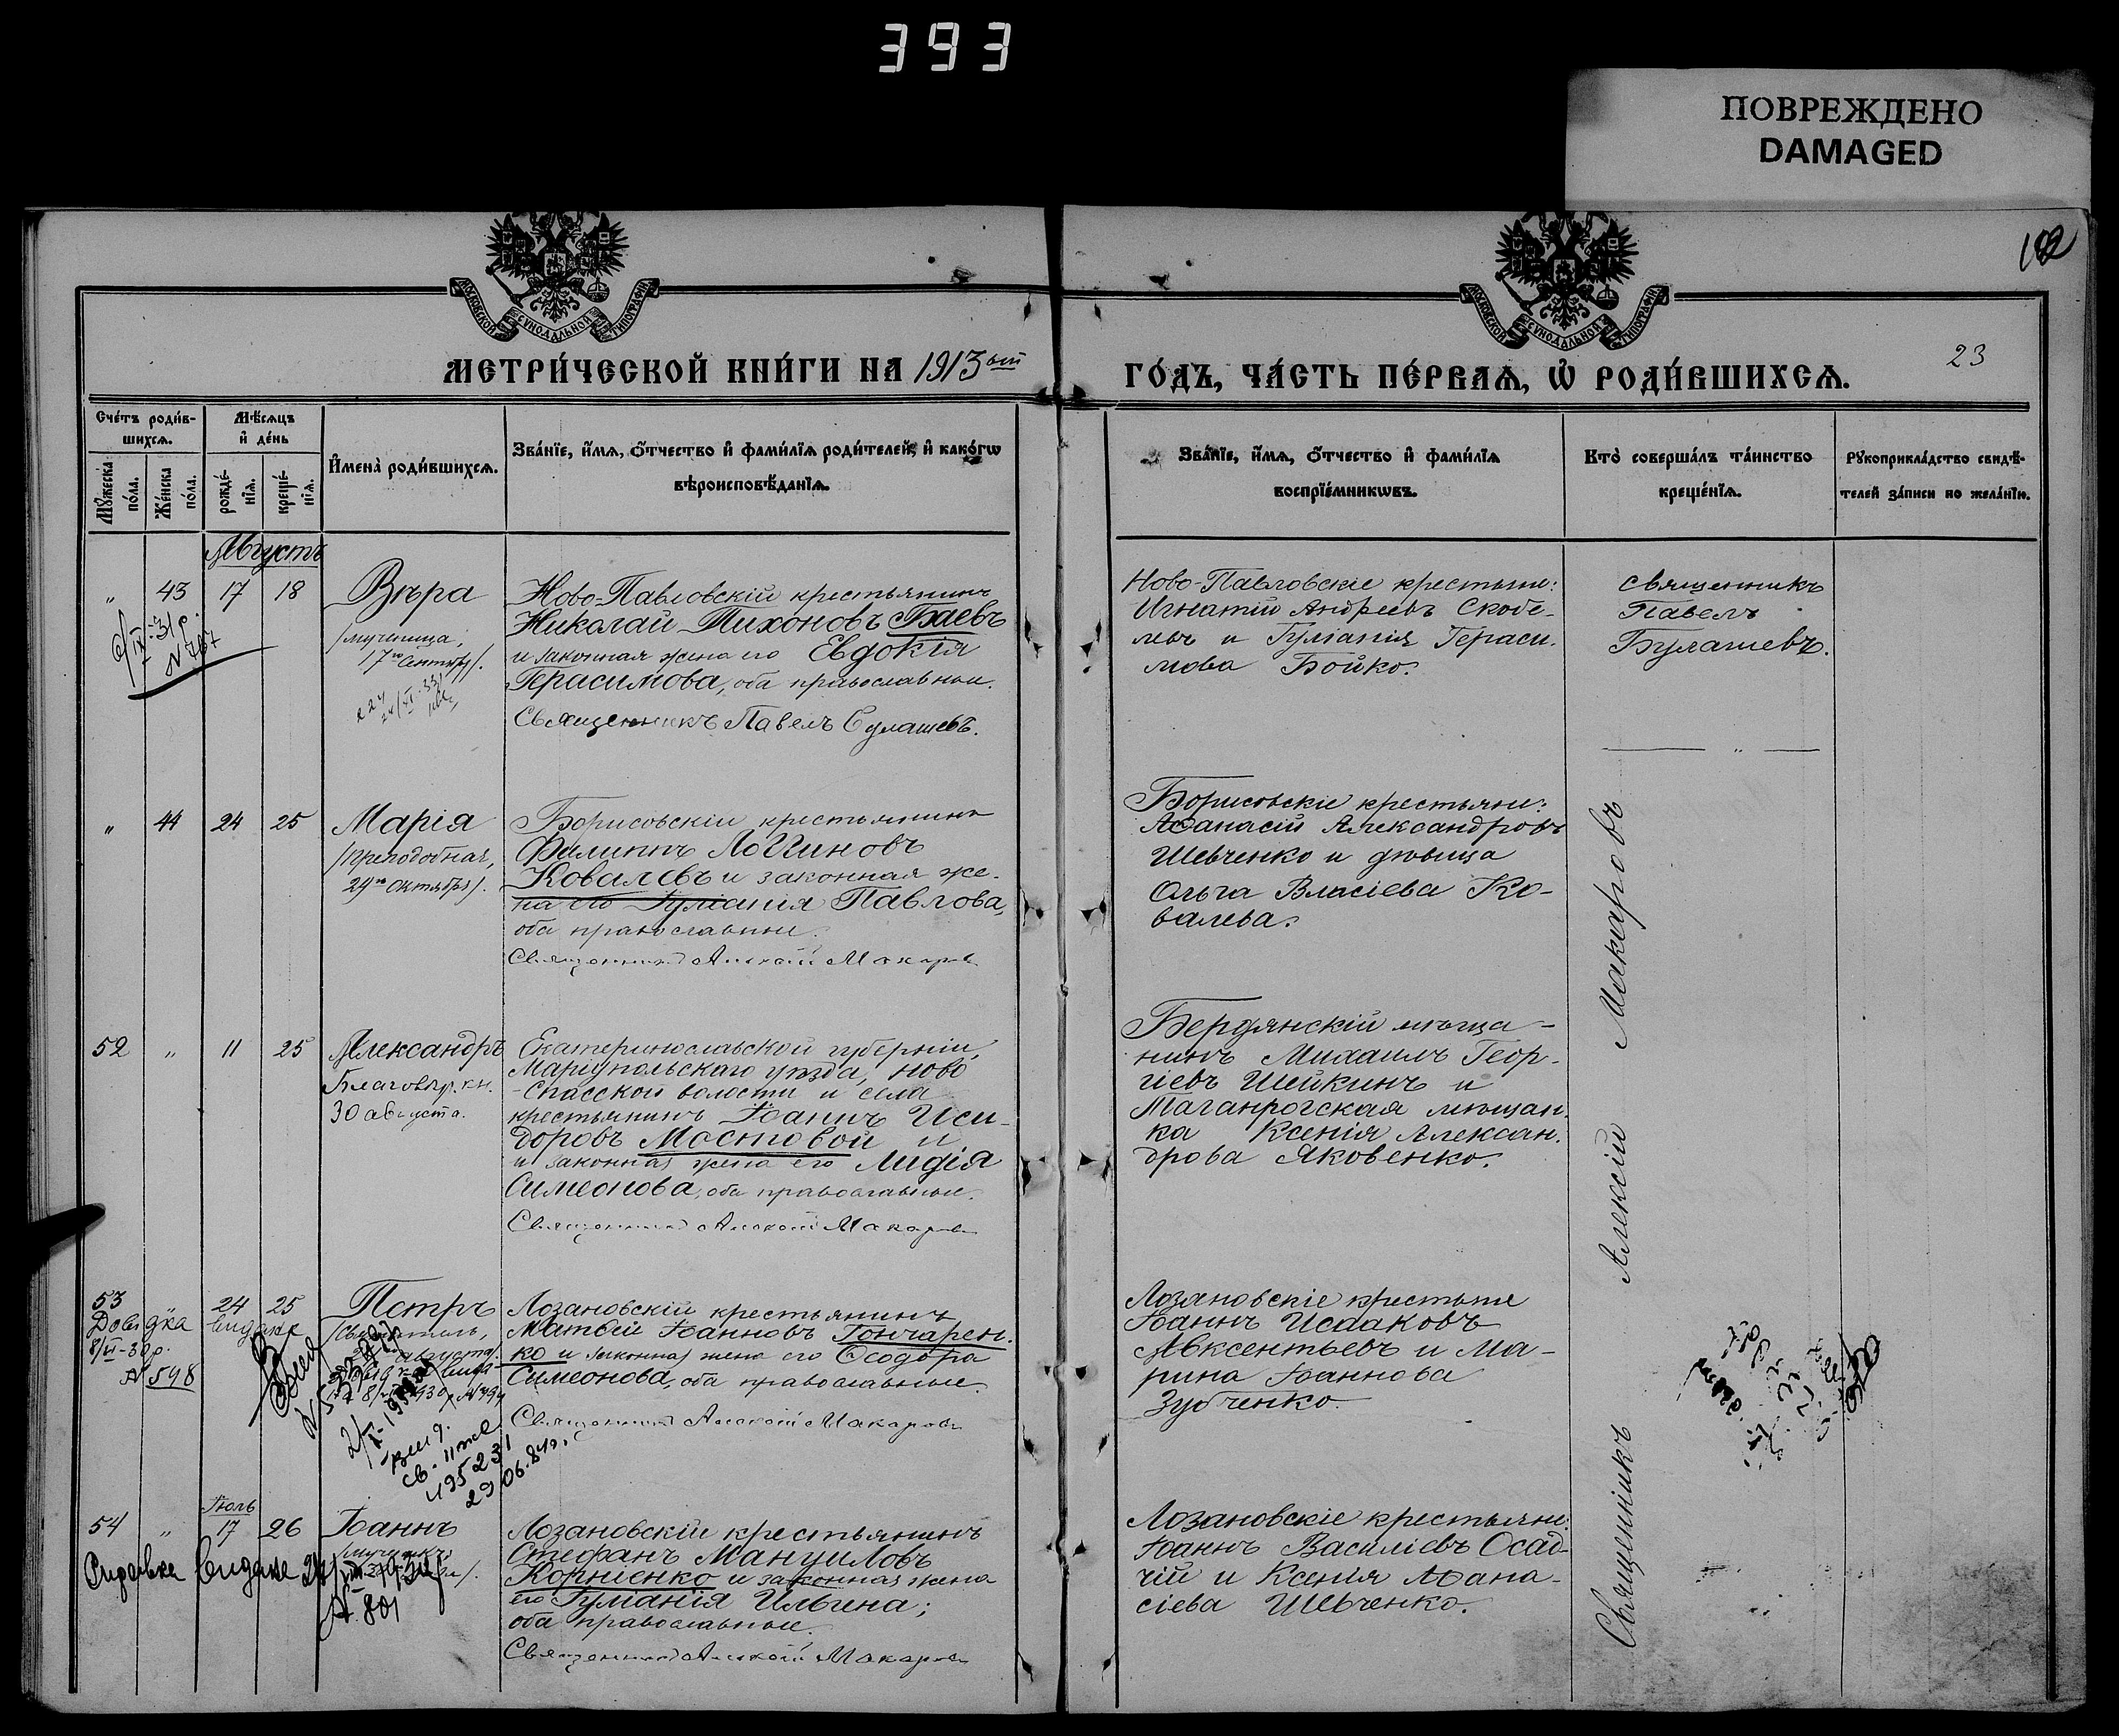 393
ПОВРЕЖДЕНО
DAMAGED
102
МОСКОВСКОЙ СУНОДАЛЬНОЙ ТИПОГРАФІИ
МОСКОВСКОЙ СУНОДАЛЬНОЙ ТИПОГРАФІИ
МЕТРИ́ЧЕСКОЙ КНИ́ГИ НА 1913ый
ГО́ДЪ, ЧА́СТЬ ПЕ́РВАѦ, Ѡ҆ РОДИ́ВШИХСѦ.
23
Сче́тъ роди́в-
шихсѧ.
Мꙋ́жеска по́ла.
Же́нска по́ла.
Мѣ́сѧцъ
и҆ де́нь
рожде́-
нїѧ.
креще́-
нїѧ.
И҆мена̀ роди́вшихсѧ.
Зва́нїе, и҆́мѧ, ѻ҆́тчество и҆ фами́лїѧ роди́телей, и҆ како́гѡ
вѣроисповѣ́данїѧ.
Зва́нїе, и҆́мѧ, ѻ҆́тчество и҆ фами́лїѧ
воспрїе́мникѡвъ.
Кто̀ соверша́лъ та́инство
креще́нїѧ.
Рꙋкоприкла́дство свидѣ́-
телей за́писи по жела́нїю.
Августъ
" 43 17 18
Вѣра
/мученица,
17го Сентября/.
Ново-Павловскій крестьянинъ
Николай Тихоновъ Баевъ
и законная жена его Евдокія
Герасимова, оба православные.
Священникъ Павелъ Булашевъ.
Ново-Павловскіе крестьяне:
Игнатій Андреевъ Скобе-
левъ и Гуліанія Гераси-
мова Бойко.
священникъ
Павелъ
Булашевъ.
" 44 24 25
Марія
/преподобная,
29го Октября/.
Борисовскій крестьянинъ
Филиппъ Логгиновъ
Ковалевъ и законная же-
на его Іуліанія Павлова,
оба православные.
Священникъ Алексій Макаровъ
Борисовскіе крестьяне:
Аѳанасій Александровъ
Шевченко и дѣвица
Ольга Власіева Ко-
валева.
52 " 11 25
Александръ
Благовѣр. кн.
30 августа.
Екатеринославской губерніи,
Маріупольскаго уѣзда, Ново
-Спасской волости и села
крестьянинъ Іоаннъ Иси-
доровъ Мостовой и
и законная жена его Лидія
Симеонова, оба православные.
Священникъ Алексій Макаровъ
Бердянскій мѣща-
нинъ Михаилъ Геор-
гіевъ Шейкинъ и
Таганрогская мѣщан-
ка Ксенія Алексан-
дрова Яковенко.
53 " 24 25
Петръ
Довидка видана
8/VI-30р.
№ 598
29/06.84г.
Лозановскій крестьянинъ
Матѳій Іоанновъ Гончарен-
ко и законная жена его Ѳеодора
Симеонова, оба православные.
Священникъ Алексій Макаровъ
Лозановскіе крестьяне
Іоаннъ Исааковъ
Авксентьевъ и Ма-
рина Іоаннова
Зубченко.
Іюль
54 " 17 26
Іоаннъ
Справка видана
№ 801
Лозановскій крестьянинъ
Стефанъ Мануиловъ
Корніенко и законная жена
его Іуліанія Ильина;
оба православные.
Священникъ Алексій Макаровъ
Лозановскіе крестьяне:
Іоаннъ Василіевъ Осад-
чій и Ксенія Аѳана-
сіева Шевченко.
Священникъ Алексій Макаровъ